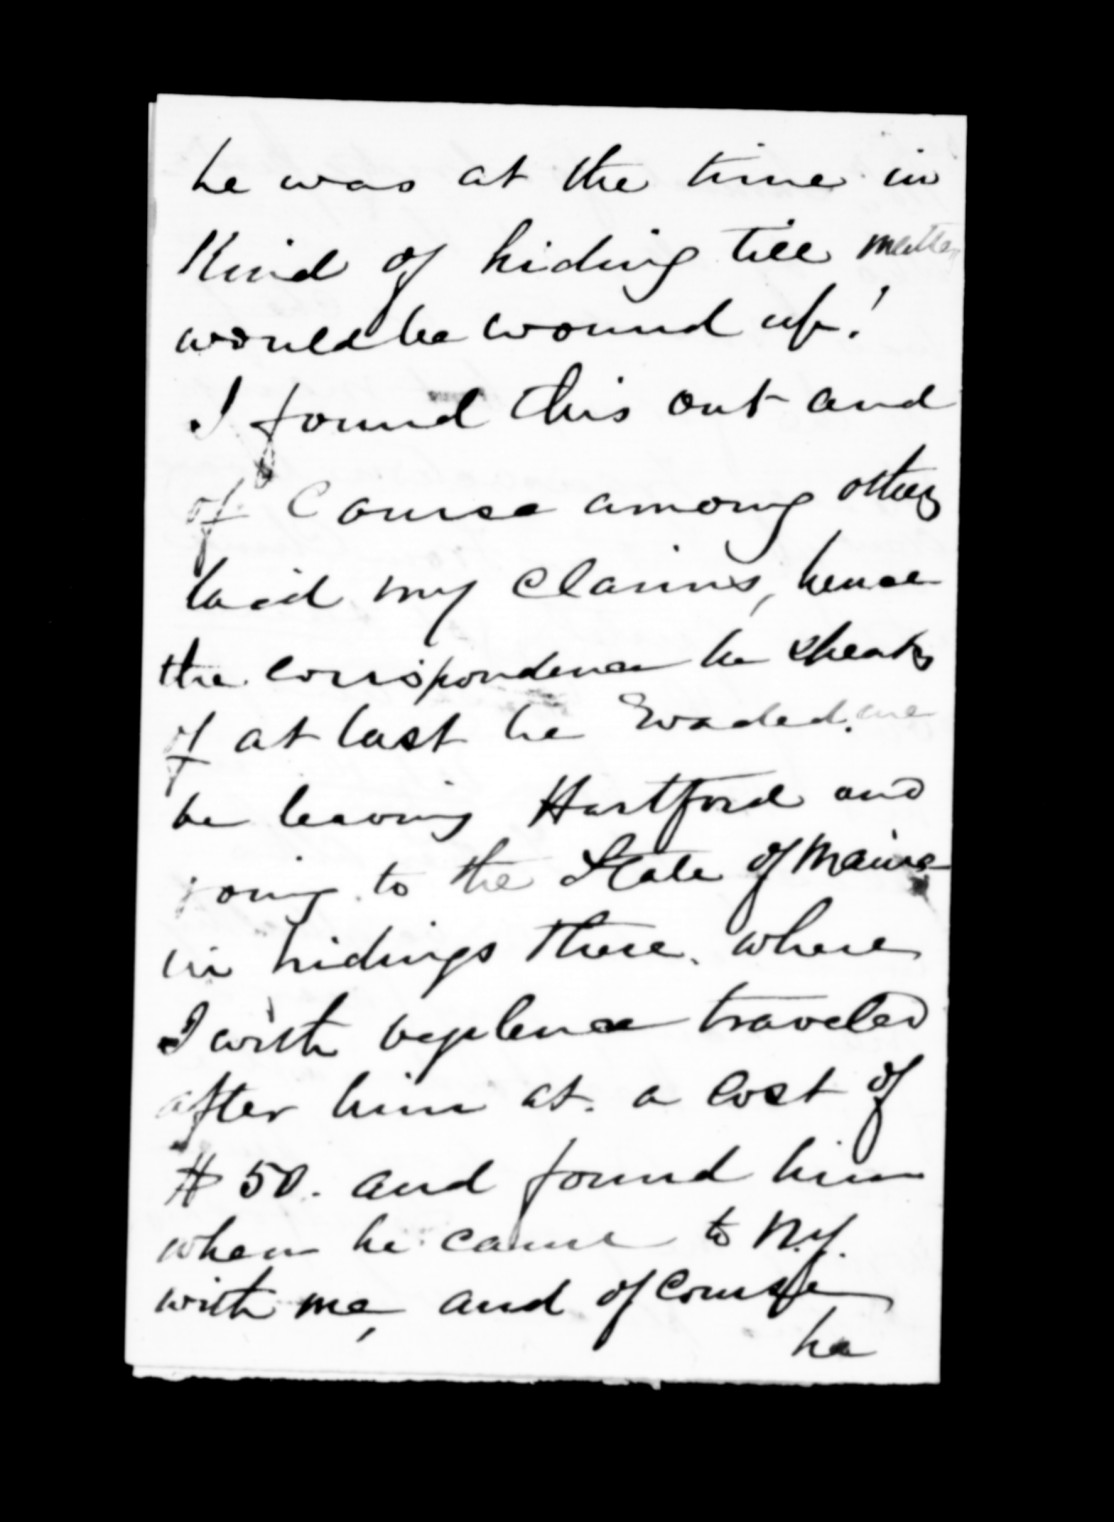 he was at the time in
Kind of hiding till matter
would be wound up!
I found this out and
of Course among others
laid my Claims, hence
the correspondence he speaks
of at last he Evaded. me
he leaving Hartford and
going to the State of Maine
in hidings there. where
I with vegelence traveled
after him at. a Cost of
$50. and found him
when he came to N.Y.
with me, and of Course
he